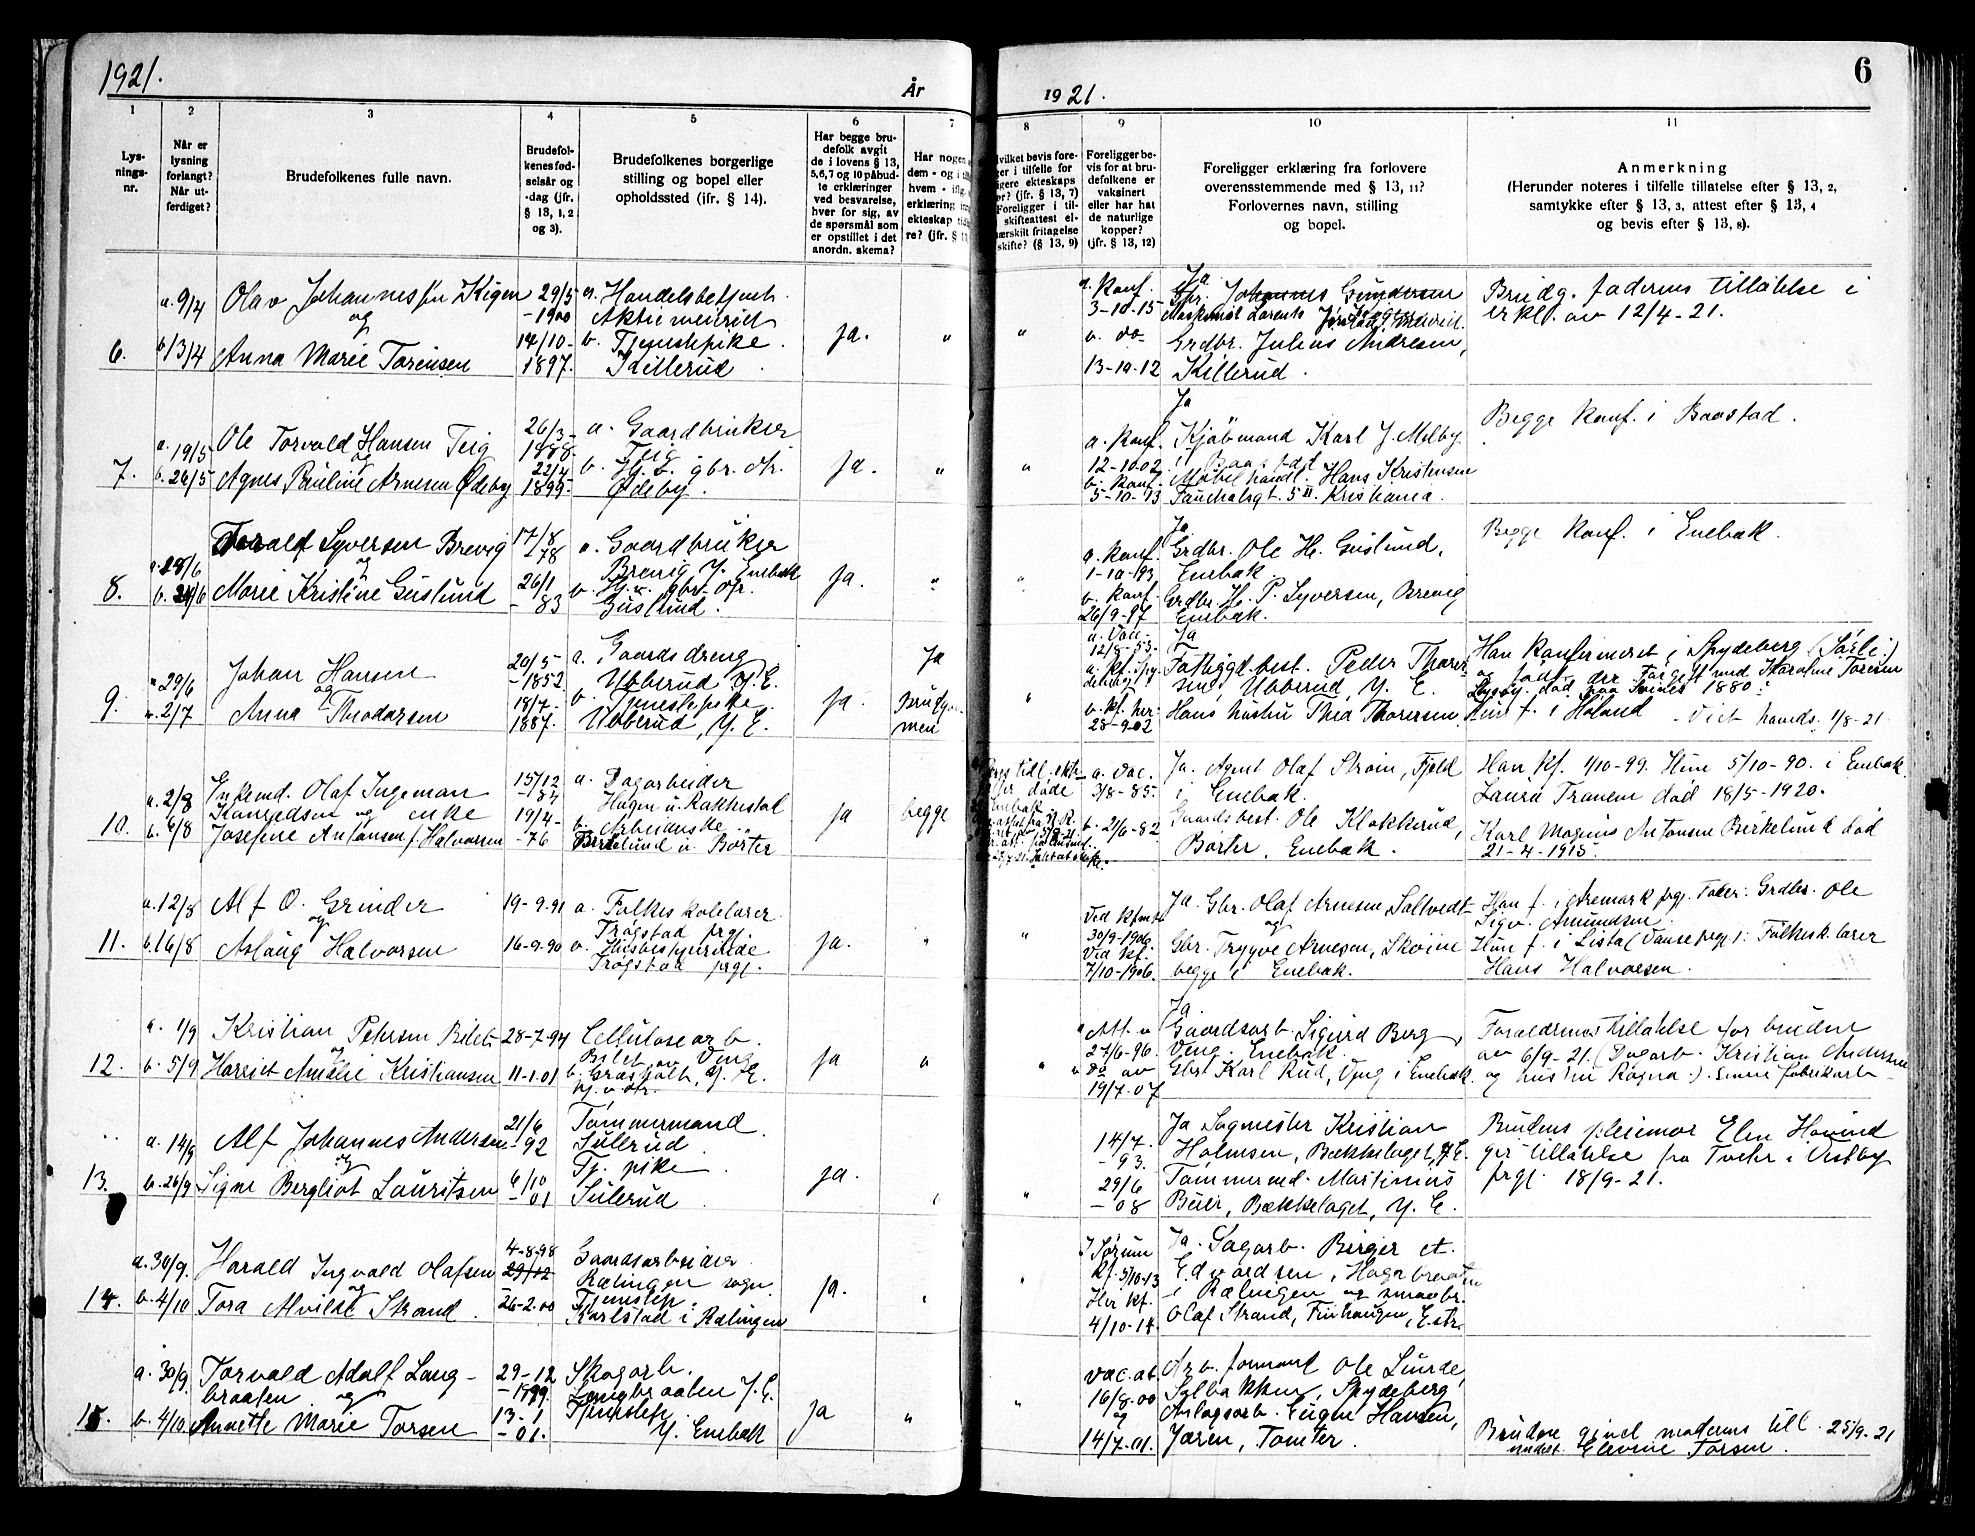 1921.
År
1921.
6
1
2
3
4
5
6
7
8
9
10
11
Lys-
nings-
nr.
Når er
lysning
forlangt?
Når ut-
ferdiget?
Brudefolkenes fulle navn.
Brudefol-
kenes fød-
selsår og
-dag (jfr.
§ 13, 1, 2
og 3).
Brudefolkenes borgerlige
stilling og bopel eller
opholdssted (ifr. § 14).
Har begge bru-
defolk avgit
de i lovens § 13,
5,6,7 og 10 påbud-
te erklæringer
ved besvarelse,
hver for sig, av
de spørsmål som
er opstillet i det
anordn. skema?
Har nogen
dem - og i
hvem - ifig.
erklæring
ekteskap tid
re? (jfr. § 1
hvilket bevis fore-
ger i tilfelle for
ligere ekteskaps
ør? (jfr. § 13, 7)
Foreligger i til-
skifteattest el-
særskilt fritagelse
skifte? (§ 13, 9)
Foreligger be-
vis for at bru-
defolkene er
vaksinert
eller har hat
de naturlige
kopper?
(jfr. § 13, 12)
Foreligger erklæring fra forlovere
overensstemmende med § 13, 11?
Forlovernes navn, stilling
og bopel.
Anmerkning
(Herunder noteres i tilfelle tillatelse efter § 13, 2,
samtykke efter § 13, 3, attest efter § 13, 4
og bevis efter § 13, 8).
6.
a. 9/4
b. 13/4
Olav Johannessen Kigen
og
Anna Marie Torensen
29/5
-1900
14/10-
1897.
a. Handelsbetjent
b. Tjenestepike.
Killerud
Ja.
"
"
a. Konf.
3-10-15
b. do-
13-10-12
Ja
Gbr. Johannes Gundersen
Grdbr. Julius Andresen,
Killerud.
Brudg. faderens tillatelse i
erkl. av 12/4-21.
7.
a. 19/5
b. 26/5
Ole Torvald Hansen Teig
og
Agnes Pauline Arnesen Ødeby
26/3-
1888
22/4
1899.
a. Gaardbruker
Teig
b. Hj. v. gbr. dtr.
Ødeby.
Ja.
"
"
a. Konf.
12-10-02
b. Konf.
5-10-13
Ja
Kjøbmand Karl J. Melby
i Baastad
Møbelhandl. Hans Kristensen
5 II. Kristiania.
Begge konf. i Baastad.
8.
a. 18/6
b. 24/6
Torvald Syversen Brevig
og
Marie Kristine Guslund
17/8
-78
26/1
-83
a. Gaardbruker
Brevig Y. Enebak
b. Hj. v. gbr. dtr.
Guslund.
Ja.
"
"
a. Konf.
1-10-93
b. Konf.
26/9-97
Ja
Grdbr. Ole H. Guslund,
Enebak.
Grdbr. H. P. Syversen, Brevig
Enebak.
Begge Konf. i Enebak.
9.
a. 29/6
b. 2/7
Johan Hansen
og
Anna Theodorsen
20/5-
-1852
18/7-
1887.
a. Gaardsdreng
Ubberud Y. E.
b. Tjenestepike
Ubberud, Y. E.
Ja.
Ja
Brudgom-
men
"
a. Vac.
12/8-53.
b. Kf. her
28-9-02
Ja
Fattiggd.best. Peder Thorer-
sen, Ubberud, Y. E.
Hans hustru Thea Thorersen
Han konfirmeret i Spydeberg
og født der Før gift med Karoline Toresen
død 1880.
Hun f. i Høland. 1/8-21
10.
a. 2/8
b. 6/8
Enkemd. Olaf Ingeman
og enke
Josefine Antonsen f. Halvorsen
15/12
-84
19/4-
-76
a. Dagarbeider
Hagen u. Rakkestad
b. Arbeiderske
Birkelund u. Børter
Ja
begge
a. Vac.
3/8-85.
b. 21/6-82
Ja. Agent Olaf Strøm, Fjeld
i Enebak.
Gaardsbest. Ole Klokkerud,
Børter, Enebak.
Han Kf. 1/10-99. Hun 5/10-90. i Enebak
Laura Tranem død 18/5-1920.
Karl Magnus Antonsen Birkelund død
21-4-1915.
11.
a. 12/8
b. 16/8
Alf O. Grinder
og
Aslaug Halvorsen
19-9-91
16-9-90
a. Folkeskolelærer
Trøgstad prgj.
b. Husbestyrerinde
Trøgstad prgj.
Ja.
"
"
Ved Kfmt.
30/9-1906
Ved Kf.
7/10-1906.
Ja. Gbr. Olaf Arnesen Saltvedt
og
Gbr. Trygve Arnesen, Skøien
begge i Enebak.
Han f. i Aremark prgj. Fader: Grdbr. Ole
Sigv. Amundsen.
Hun f. i Lista (Vanse prgj.): Folkesk.lærer
Hans Halvorsen.
12.
a. 1/9
b. 5/9
Kristian Petersen Bilet
og
Harriet Amalie Kristiansen
28-7-94
11-1-01
Cellulosearb.
Bilet av Veng
b. Græsholt, Y. E.
hj. v. dtr.
Ja
"
"
Att. v
27/6-96.
do av
19/7-07
Ja
Gaardsarb. Sigurd Berg,
Veng. Enebak.
Gbr. Karl Rud, Veng i Enebak.
Forældrenes tillatelse for bruden
av 6/9-21. (Dagarb. Kristian Andersen
og hustru Ragna.)
13.
a. 14/9
b. 26/9
Alf Johannes Andersen
og
Signe Bergliot Lauritsen
21/6
-92
6/10
-01
Tømmermand
Sulerud
Tj. pike
Sulerud
Ja.
"
"
14/7.
-93.
29/6
-08
Ja Sagmester Kristian
Holmsen, Bækkelaget, Y. E.
Tømmermd. Martinius
Beier, Bækkelaget, Y. E.
Brudens pleiemor Elen Hovind
gir tillatelse fra Tveter i Vestby
prgj. 18/9-21.
14.
a. 30/9.
b. 4/10
Harald Ingvald Olafsen
og
Tora Alvilde Strand.
4-8-98
29/12
26-2-00
Gaardsarbeider
Rælingen sogn
Tjenstep.
Karlstad i Rælingen
Ja.
"
"
I Sørum
Kf. 5/10-13
Her Kf.
4/10-14
Ja. Sagarb. Birger
Edvardsen, Hagabraaten
i Rælingen og smaabr.
Olaf Strand, Finhaugen, Østr.
15.
a. 30/9.
b. 4/10
Torvald Adolf Lang-
braaten og
Annette Marie Torsen
29-12
-1899.
13-1
-01.
Skogarb.
Langbraaten Y. E.
Tjenstep.
Y. Enebak
Ja
"
"
Vac. at.
16/8-00
og
14/7-01.
Arb. formand Ole Lunde,
Spydeberg
og
Anlagsarb. Eugen Hansen,
Jaren, Tomter.
Brudens moderens till. 25/9-21
Elevine Torsen.